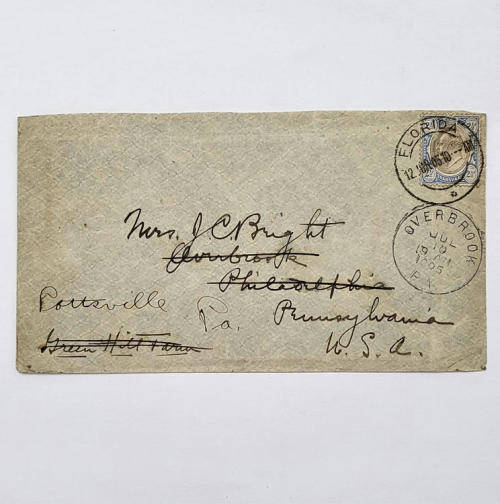 FLORIDA
12 JUN 05 10 -- AM
OVERBROOK
JUL
10
1905
PA.
Mrs. J C Bright
Overbrook
Philadelphia
Pottsville
Pa.
Pennsylvania
Green Hill Farm
U. S. A.